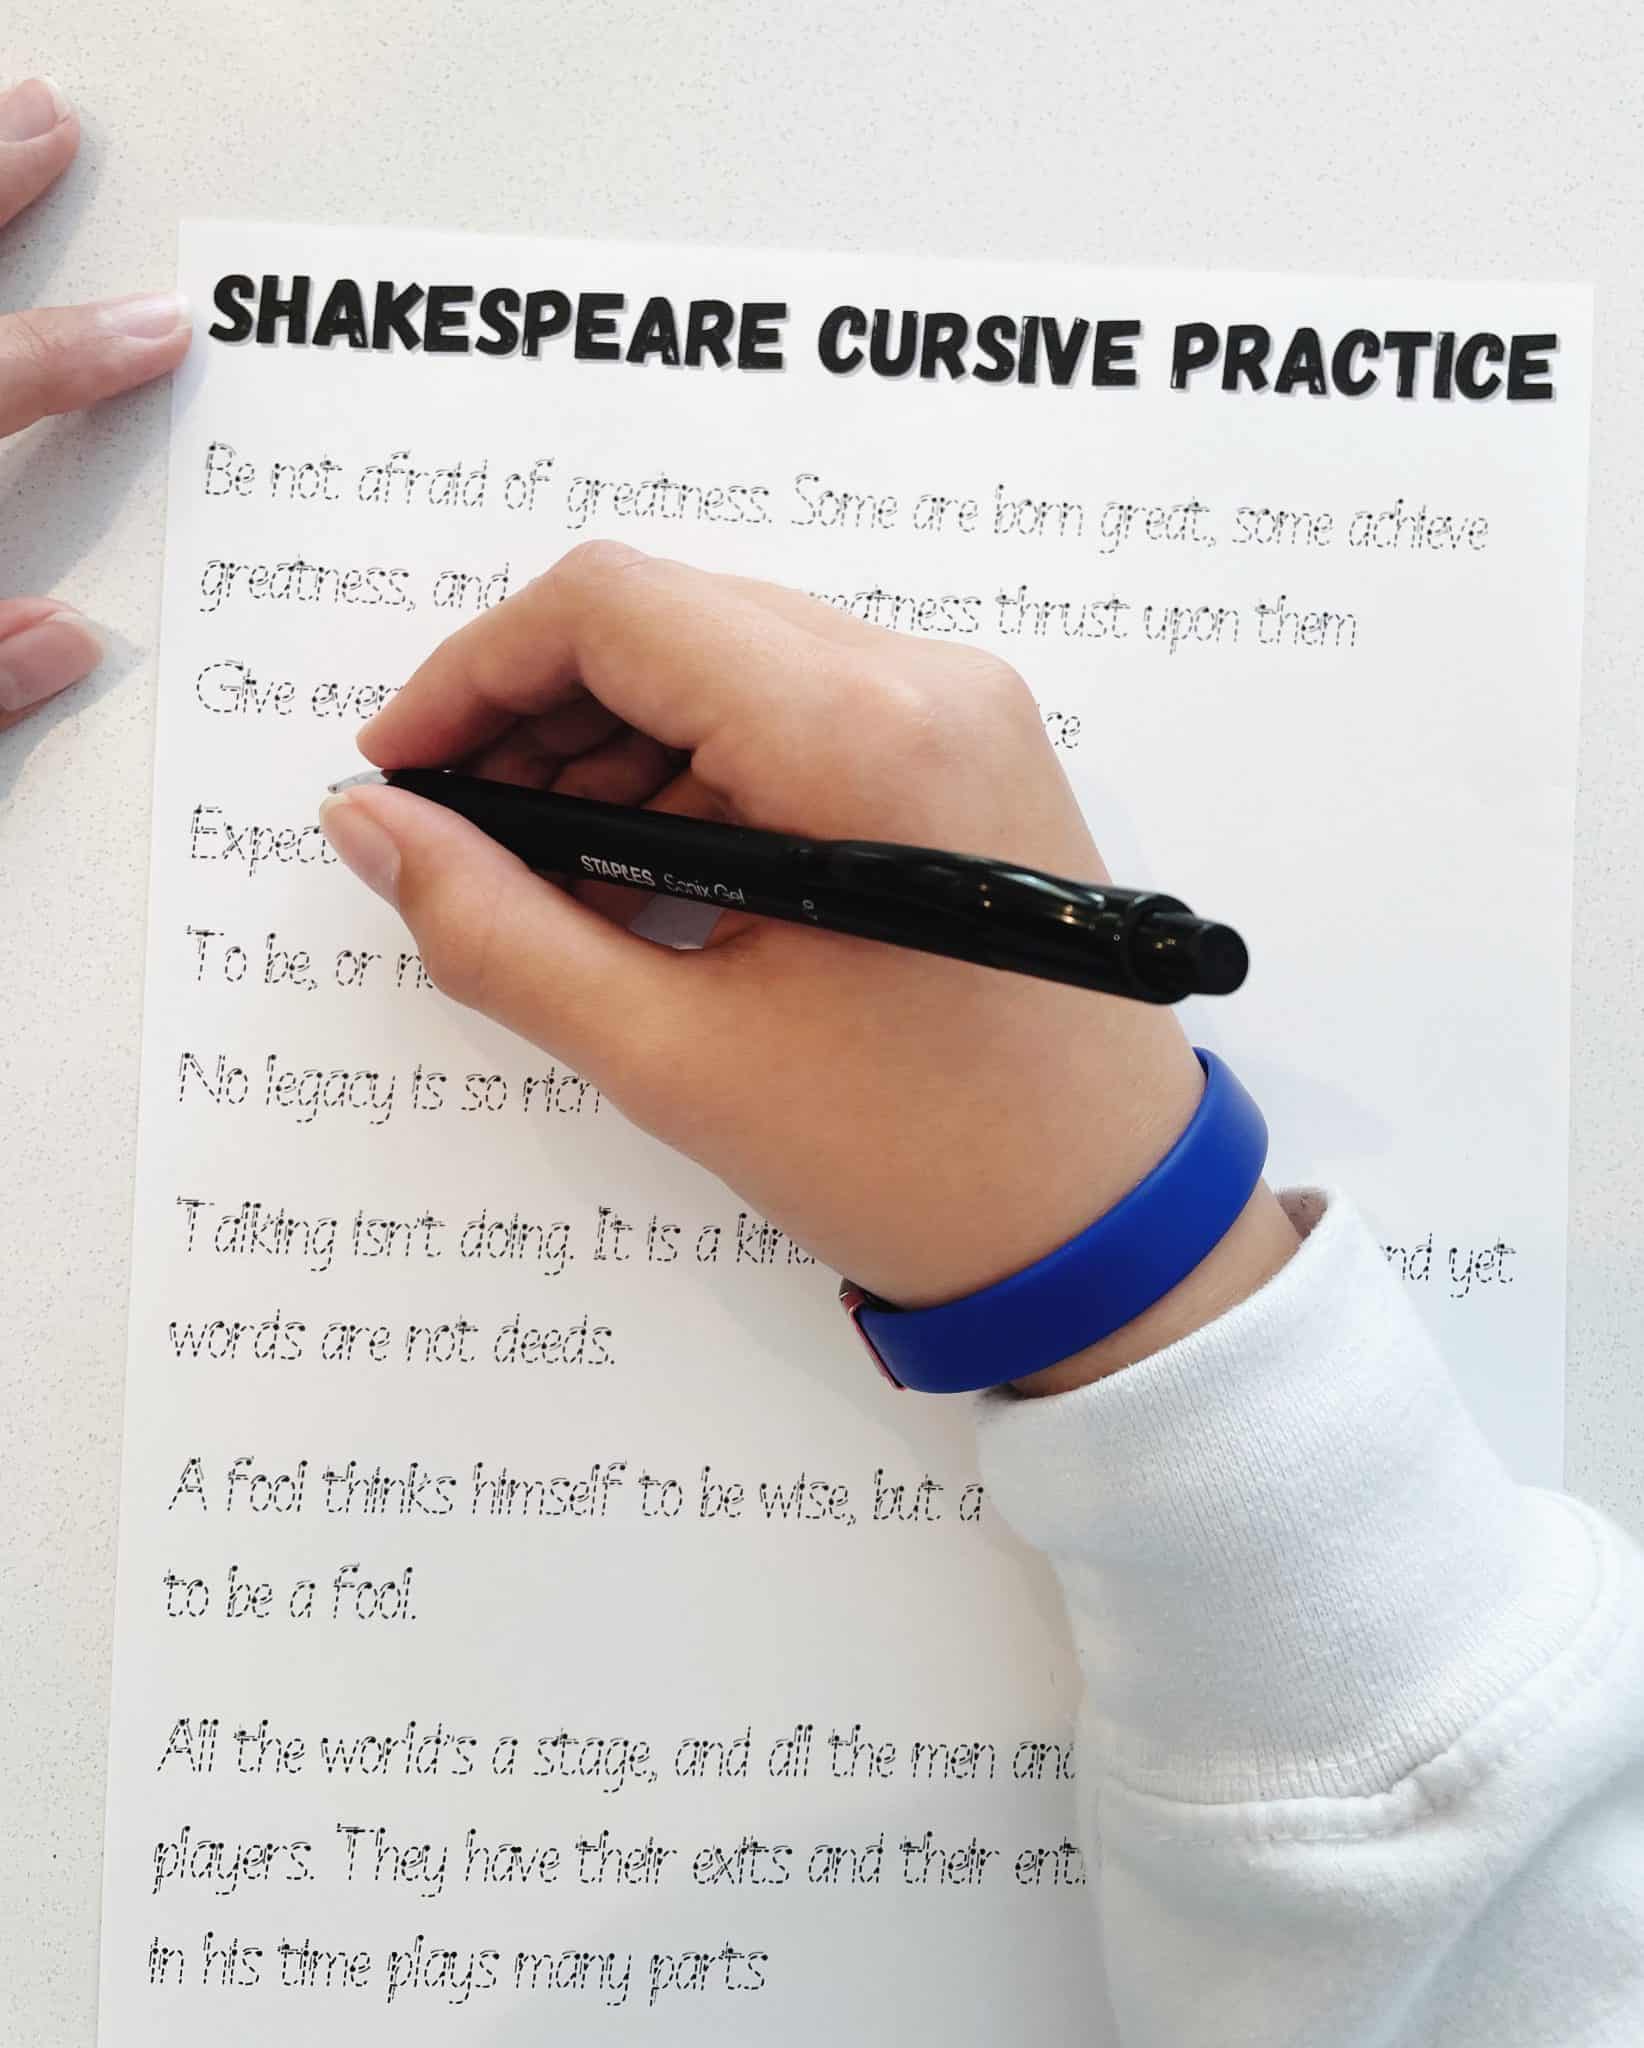 SHAKESPEARE CURSIVE PRACTICE
Be not afraid of greatness. Some are born great, some achieve
greatness, and thrust upon them
Give
STAPLES Sonix Gel
To be, or
No legacy is so rich
Talking isn't doing. It is a yet
words are not deeds.
A fool thinks himself to be wise, but a
to be a fool.
All the world's a stage, and all the men
players. They have their exits and their
in his time plays many parts